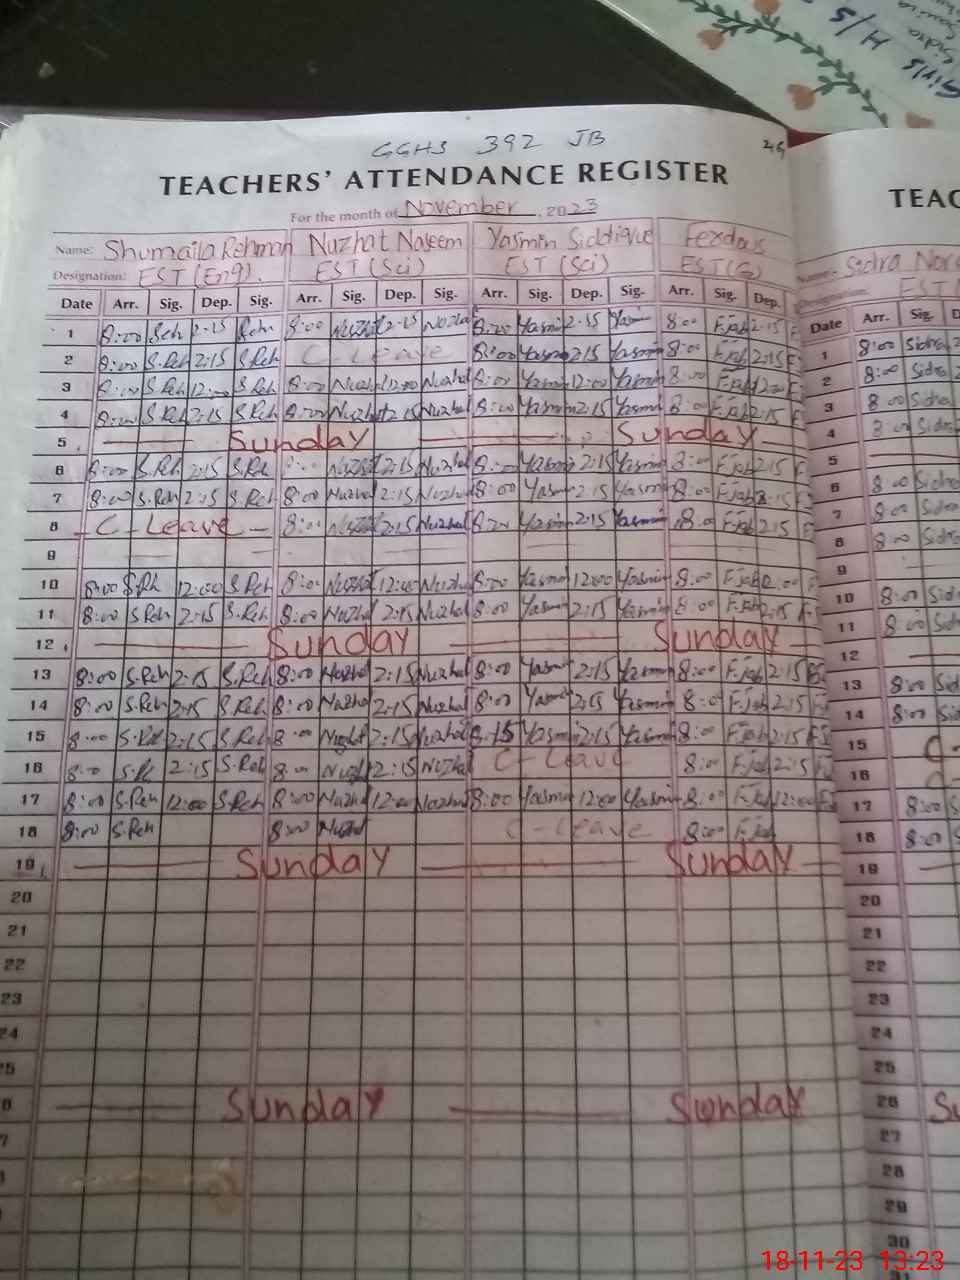 Girls H/S
Sidra
GGHS 392 JB
TEACHERS' ATTENDANCE REGISTER
TEAC
For the month of November, 2023
Name: Shumaila Rehman Nuzhat Naseem Yasmin Siddique Ferdous
Name: Sidra Nor
Designation: EST (Eng). EST (Sci) EST (Sci) EST (G)
Designation: EST
Date Arr. Sig. Dep. Sig. Arr. Sig. Dep. Sig. Arr. Sig. Dep. Sig. Arr. Sig. Dep.
Date Arr. Sig. D
1 8:00 2:15 8:00 Nuzhat 2:15 Nuzhat 8:00 Yasmin 2:15 Yasmin 8:00 F.jab 2:15 F
1 8:00 Sidra 2
2 8:00 S.Reh 2:15 S.Reh C-Leave 8:00 Yasmin 2:15 Yasmin 8:00 F.jab 2:15 F
2 8:00 Sidra
3 8:00 S.Reh 12:00 S.Reh 8:00 Nuzhat 12:00 Nuzhat 8:00 Yasmin 12:00 Yasmin 8:00 F.jab 12:00 F
3 8:00 Sidra
4 8:00 S.Reh 2:15 S.Reh 8:00 Nuzhat 2:15 Nuzhat 8:00 Yasmin 2:15 Yasmin 8:00 F.jab 2:15 F
4 8:00 Sidra
5 Sunday Sunday
5
6 8:00 S.Reh 2:15 S.Reh 8:00 Nuzhat 2:15 Nuzhat 8:00 Yasmin 2:15 Yasmin 8:00 F.jab 2:15 F
6 8:00 Sidra
7 8:00 S.Reh 2:15 S.Reh 8:00 Nuzhat 2:15 Nuzhat 8:00 Yasmin 2:15 Yasmin 8:00 F.jab 2:15 F
7 8:00 Sidra
8 C-Leave 8:00 Nuzhat 2:15 Nuzhat 8:00 Yasmin 2:15 Yasmin 8:00 F.jab 2:15 F
8 8:00 Sidra
9
9
10 8:00 S.Rh 12:00 S.Reh 8:00 Nuzhat 12:00 Nuzhat 8:00 Yasmin 12:00 Yasmin 8:00 F.jab 12:00 F
10 8:00 Sid
11 8:00 S.Reh 2:15 S.Reh 8:00 Nuzhat 2:15 Nuzhat 8:00 Yasmin 2:15 Yasmin 8:00 F.jab 2:15 F
11 8:00 Sid
12 Sunday Sunday
12
13 8:00 S.Reh 2:15 S.Reh 8:00 Nuzhat 2:15 Nuzhat 8:00 Yasmin 2:15 Yasmin 8:00 F.jab 2:15
13 8:00 Sid
14 8:00 S.Reh 2:15 S.Reh 8:00 Nuzhat 2:15 Nuzhat 8:00 Yasmin 2:15 Yasmin 8:00 F.jab 2:15
14 8:00 Sid
15 8:00 S.Reh 2:15 S.Reh 8:00 Nuzhat 2:15 Nuzhat 8:15 Yasmin 2:15 Yasmin 8:00 F.jab 2:15
15 C-
16 8:00 S.R 2:15 S.Reh 8:00 Nuzhat 2:15 Nuzhat C-Leave 8:00 F.jab 2:15
16 C
17 8:00 S.Reh 12:00 S.Reh 8:00 Nuzhat 12:00 Nuzhat 8:00 Yasmin 12:00 Yasmin 8:00 F.jab 12:00
17 8:00 S
18 8:00 S.Reh 8:00 Nuzhat C-Leave 8:00 F.jab
18 8:00 S
19 Sunday Sunday
19
20
20
21
21
22
22
23
23
24
24
25
25
26 Sunday Sunday
26 Su
27
27
28
28
29
30
18-11-23 13:23